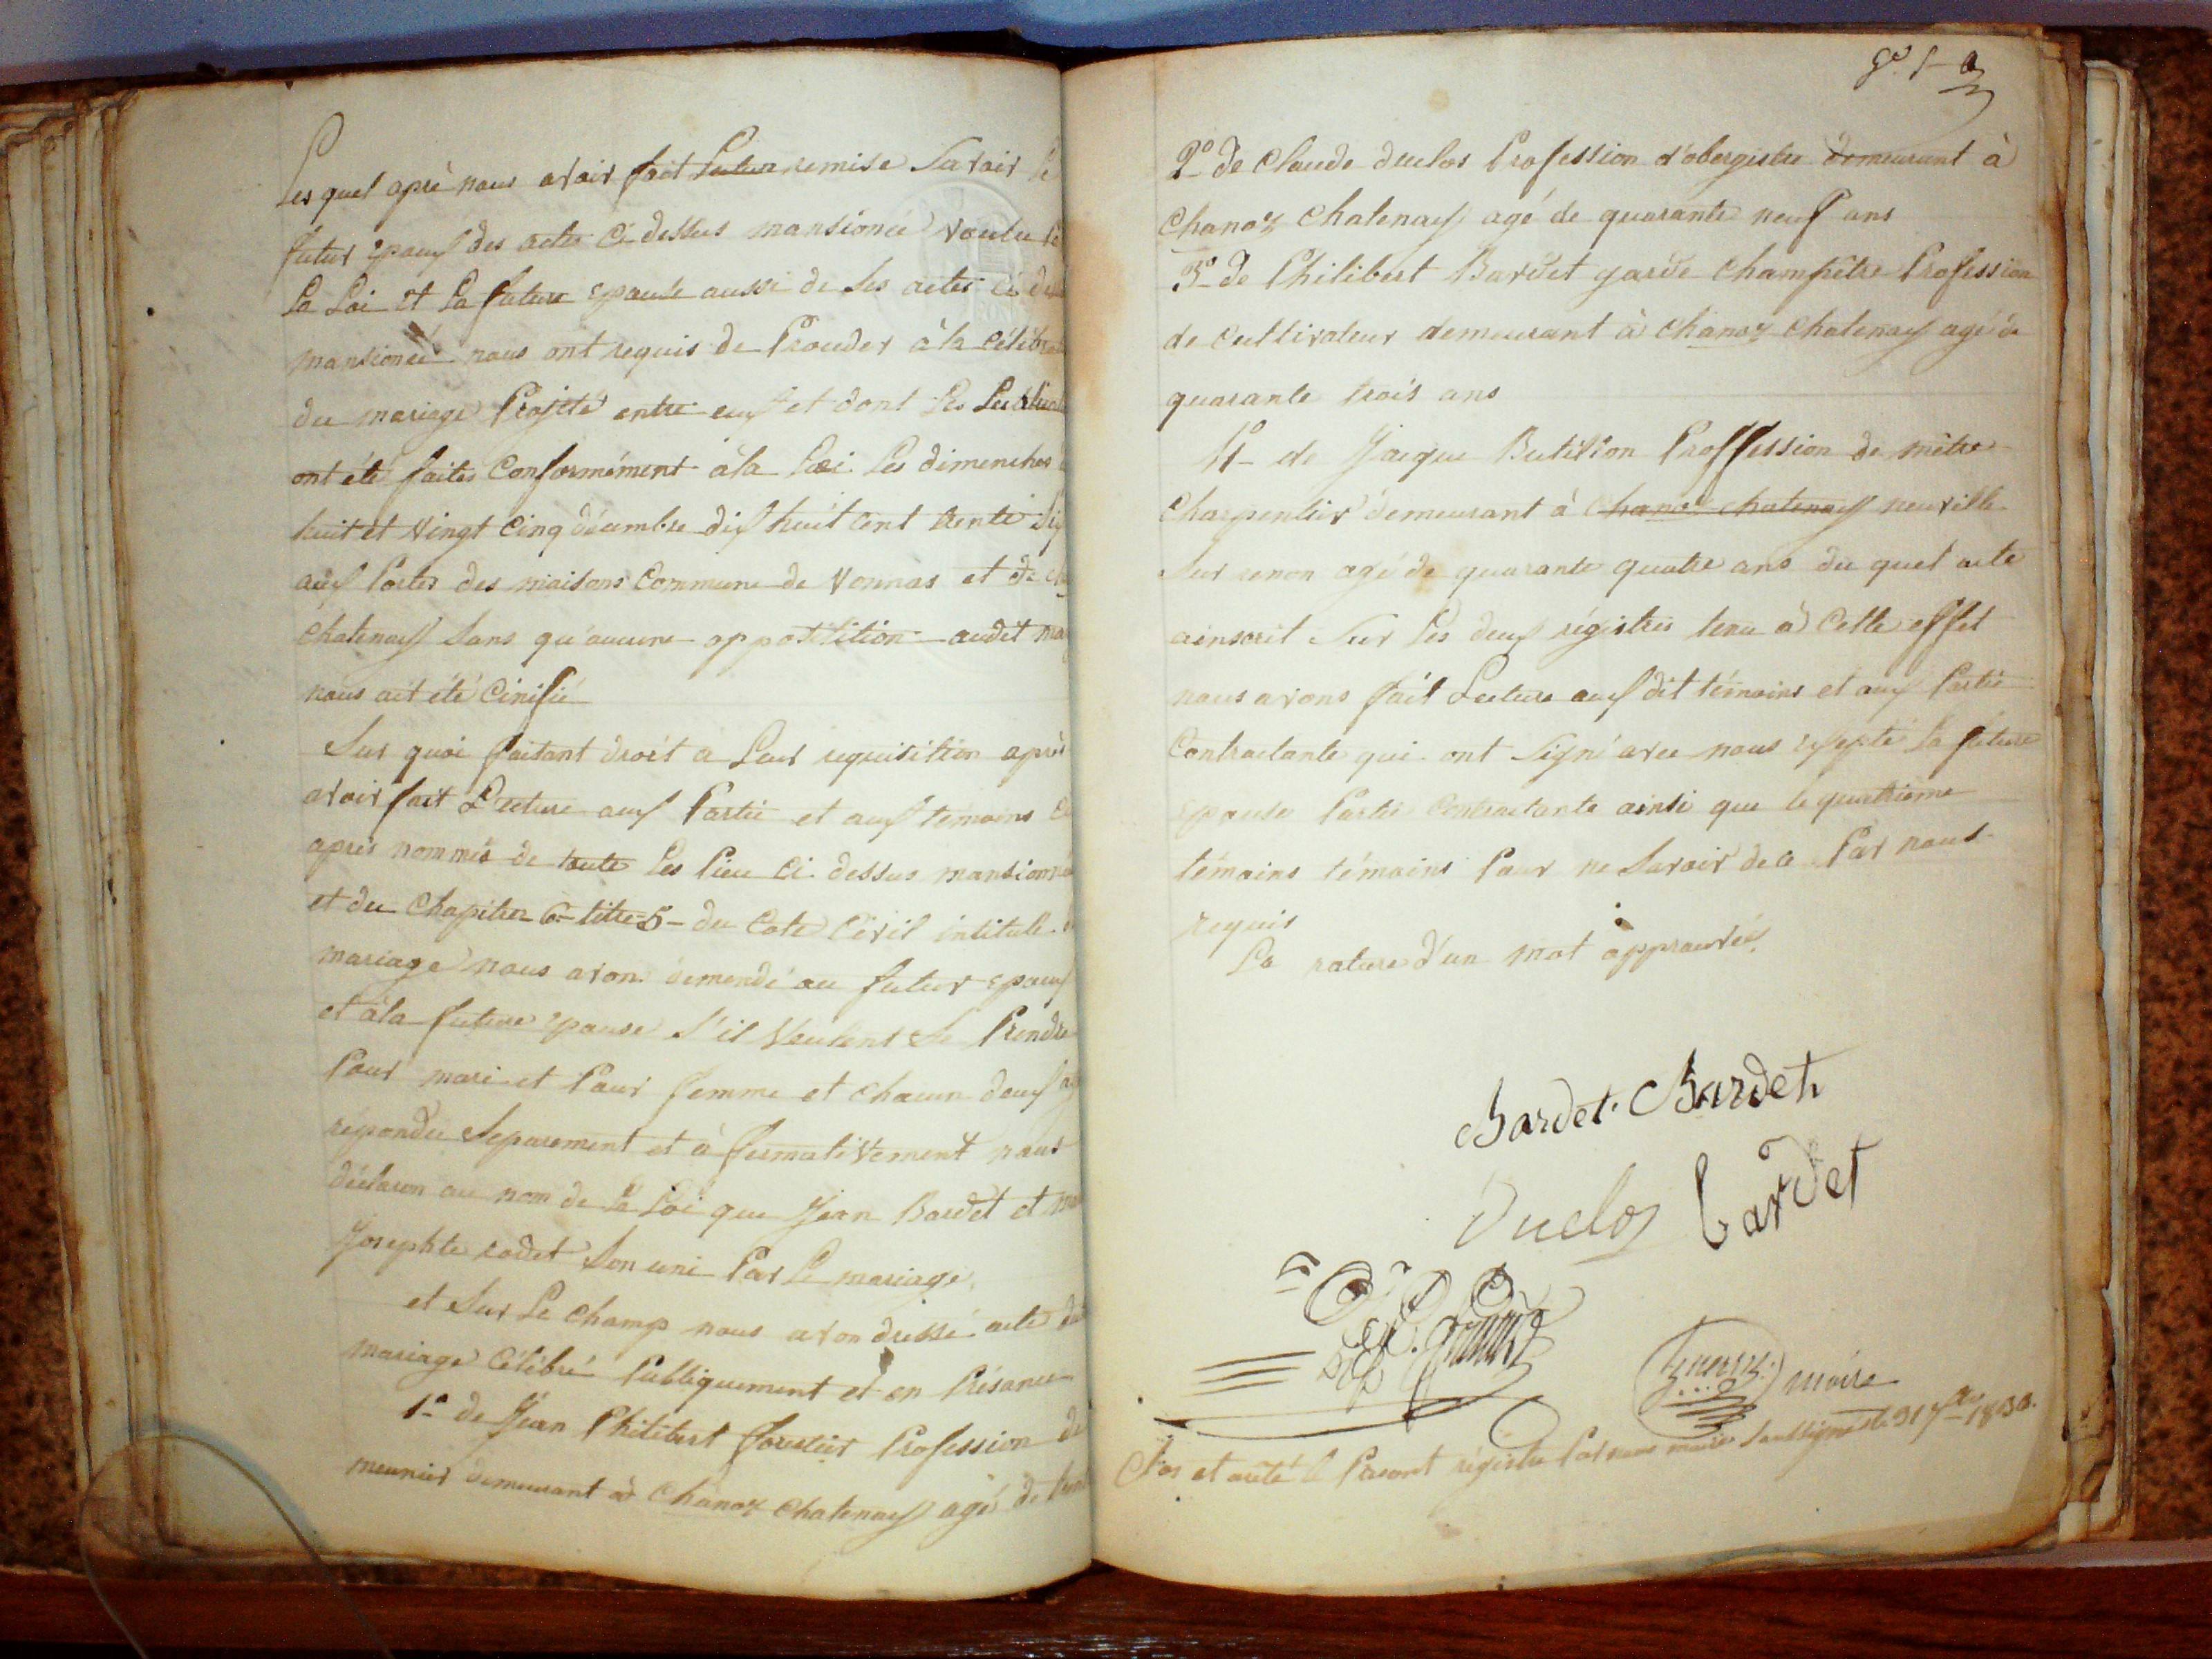 Les quel aprè nous avoir fait Lecture remise Savoir le
futur Epoux des actes Ci dessus mansionée voulu
La Loi et La future Epouse aussi de Ses actes Ci
mansionée nous ont requis de Proceder à la Célébra
du mariage Projeté entre eux et dont Les Publica
ont été faites Conformément à la Loi Les dimenches
huit et Vingt Cinq décembre dix huit Cent trente Six
aux Portes des maisons Commune de Vonnas et de
Chatenay Sans qu'aucune oppotitition audit ma
nous ait été Cinifié
Sur quoi faisant droit a Leur requisition après
avoir fait Lecture aux Partie et aux témoins
après nommés de toute Les Pieu Ci dessus mansionné
et du Chapitre 6 titre 5 du Cote Civil intitule
mariage nous avon demendé au futur Epoux
et à la future Epouse S'il Veulent Se Prendre
Pour mari et Pour femme et Chacun deux
répondu Separement et à fermativement nous
déclaron au nom de La Loi que Jean Bardet et
Josephte cadet Son uni Par Le mariage,
et Sur Le Champ nous avon dressé acte
mariage Célébré Publiquement et en Présance
1º de Jean Philibert forestier Profession de
meunier demeurant à Chanoz Chatenay agé de
2º de Claude duclos Profession d'obergistre demeurant à
Chanoz Chatenay agé de quarante neuf ans
3º de Philibert Bardet garde Champêtre Profession
de Cultivateur demeurant à Chanoz Chatenay agé de
quarante trois ans
4º de Jacque Butillon Proffession de mètre
Charpentier demeurant à Chanoz Chatenay neuville
Sur renon agé de quarante quatre ans du quel acte
ainscrit Sur Les deux régistres tenu à Cette effet
nous avons fait Lecture aux dit témoins et aux Partie
Contractante qui ont Signé avec nous Exsepté La future
Epouse Partie Contractante ainsi que le quatrième
témoins témoins Pour ne Savoir de ce Par nous
requis
La rature d'un mot approuvée
Bardet Bardet
Duclos Bardet
maire
Clos et arété le Présent régistre Par nous maire Soussigné le 31